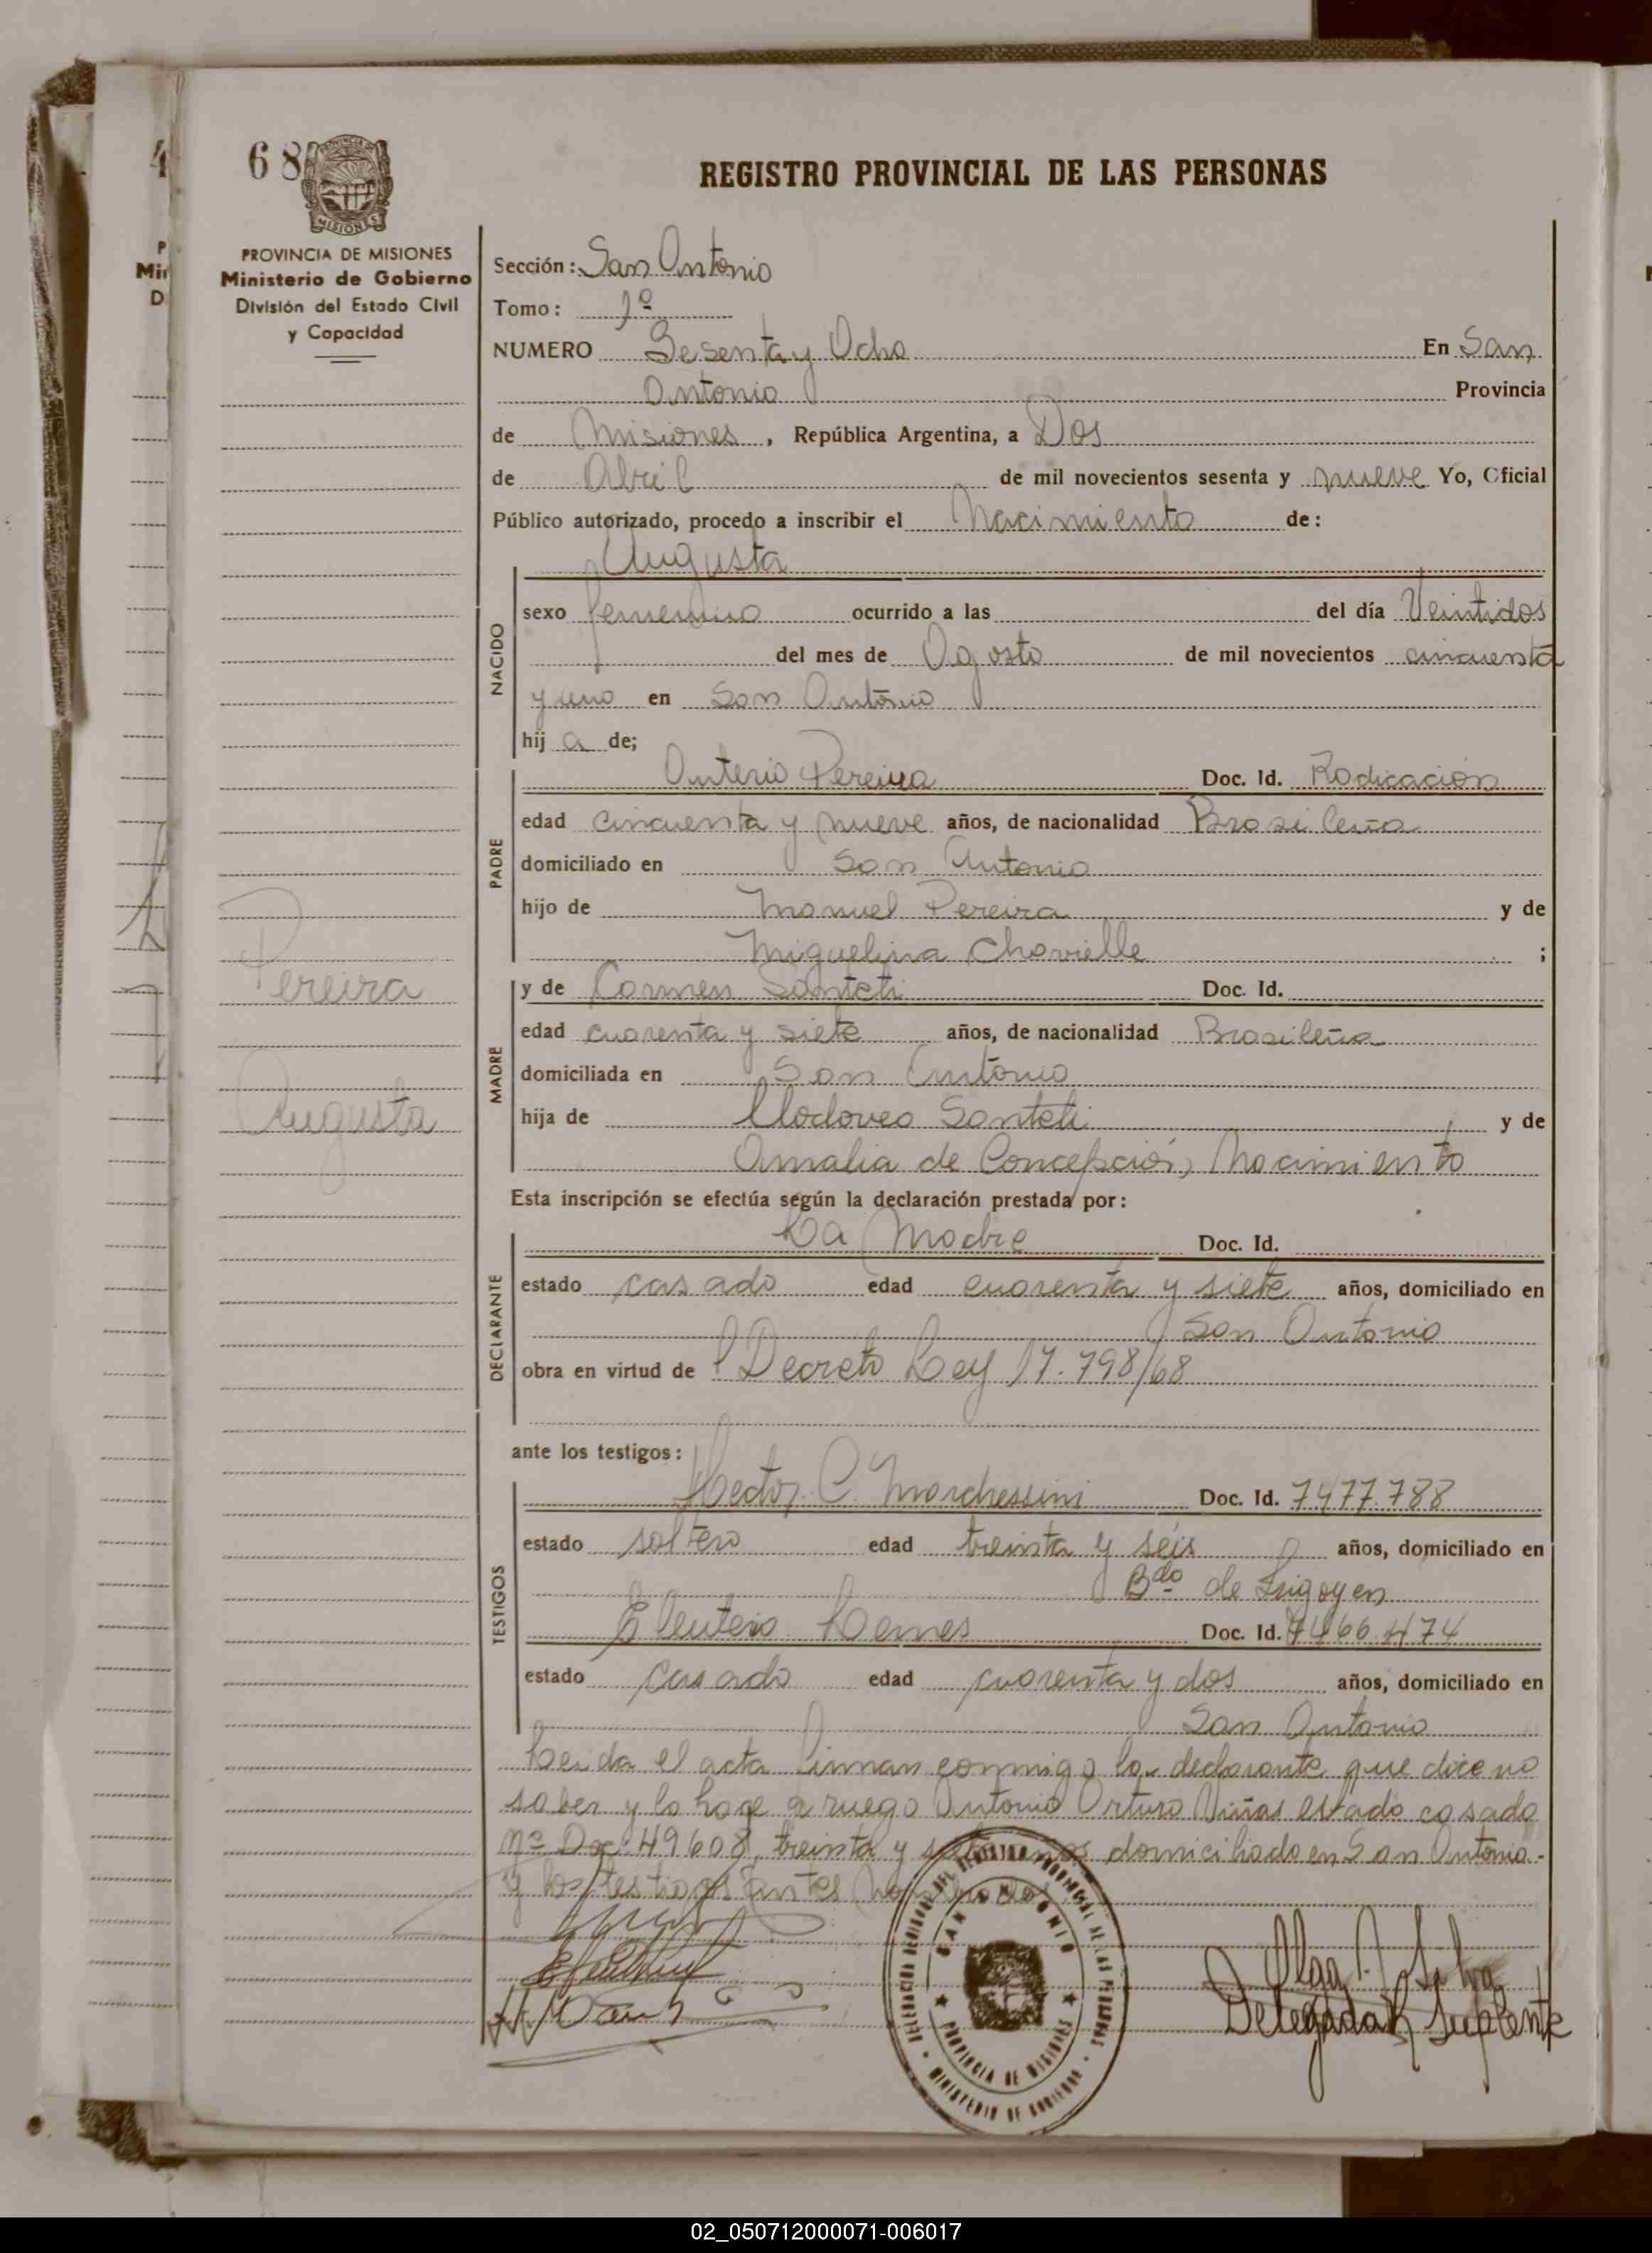 68
PROVINCIA DE MISIONES
Ministerio de Gobierno
División del Estado Civil
y Capacidad
Pereira
Augusta
REGISTRO PROVINCIAL DE LAS PERSONAS
Sección: San Antonio
Tomo: 1º
NUMERO Sesenta y Ocho En San
Antonio Provincia
de Misiones, República Argentina, a Dos
de Abril de mil novecientos sesenta y nueve Yo, Oficial
Público autorizado, procedo a inscribir el Nacimiento de:
Augusta
NACIDO
sexo femenino ocurrido a las del día Veintidos
del mes de Agosto de mil novecientos cincuenta
y uno en San Antonio
hij a de;
PADRE
Anterio Pereira Doc. Id. Radicación
edad cincuenta y nueve años, de nacionalidad Brasileña
domiciliado en San Antonio
hijo de Manuel Pereira y de
Miguelina Chavielle ;
MADRE
y de Carmen Santeti Doc. Id.
edad cuarenta y siete años, de nacionalidad Brasileña
domiciliada en San Antonio
hija de Clodoveo Santeti y de
Amalia de Concepción, Nacimiento
Esta inscripción se efectúa según la declaración prestada por:
DECLARANTE
La Madre Doc. Id.
estado casado edad cuarenta y siete años, domiciliado en
San Antonio
obra en virtud de l Decreto Ley 17.798/68
ante los testigos:
TESTIGOS
Hector C. Marchessini Doc. Id. 7477.788
estado soltero edad treinta y séis años, domiciliado en
Bdo de Irigoyen
Eleuterio Lemes Doc. Id. 7466.474
estado Casado edad cuarenta y dos años, domiciliado en
San Antonio
Leida el acta firman conmigo la declarante que dice no
saber y lo hace a ruego Antonio Arturo Viñas estado casado
Nº Doc. 49608, treinta y domiciliado en San Antonio.-
y los testigos antes
DELEGACION DEL REGISTRO PROVINCIAL DE LAS PERSONAS
SAN ANTONIO
PROVINCIA DE MISIONES
MINISTERIO DE GOBIERNO
Olga
Delegada Suplente
02_050712000071-006017